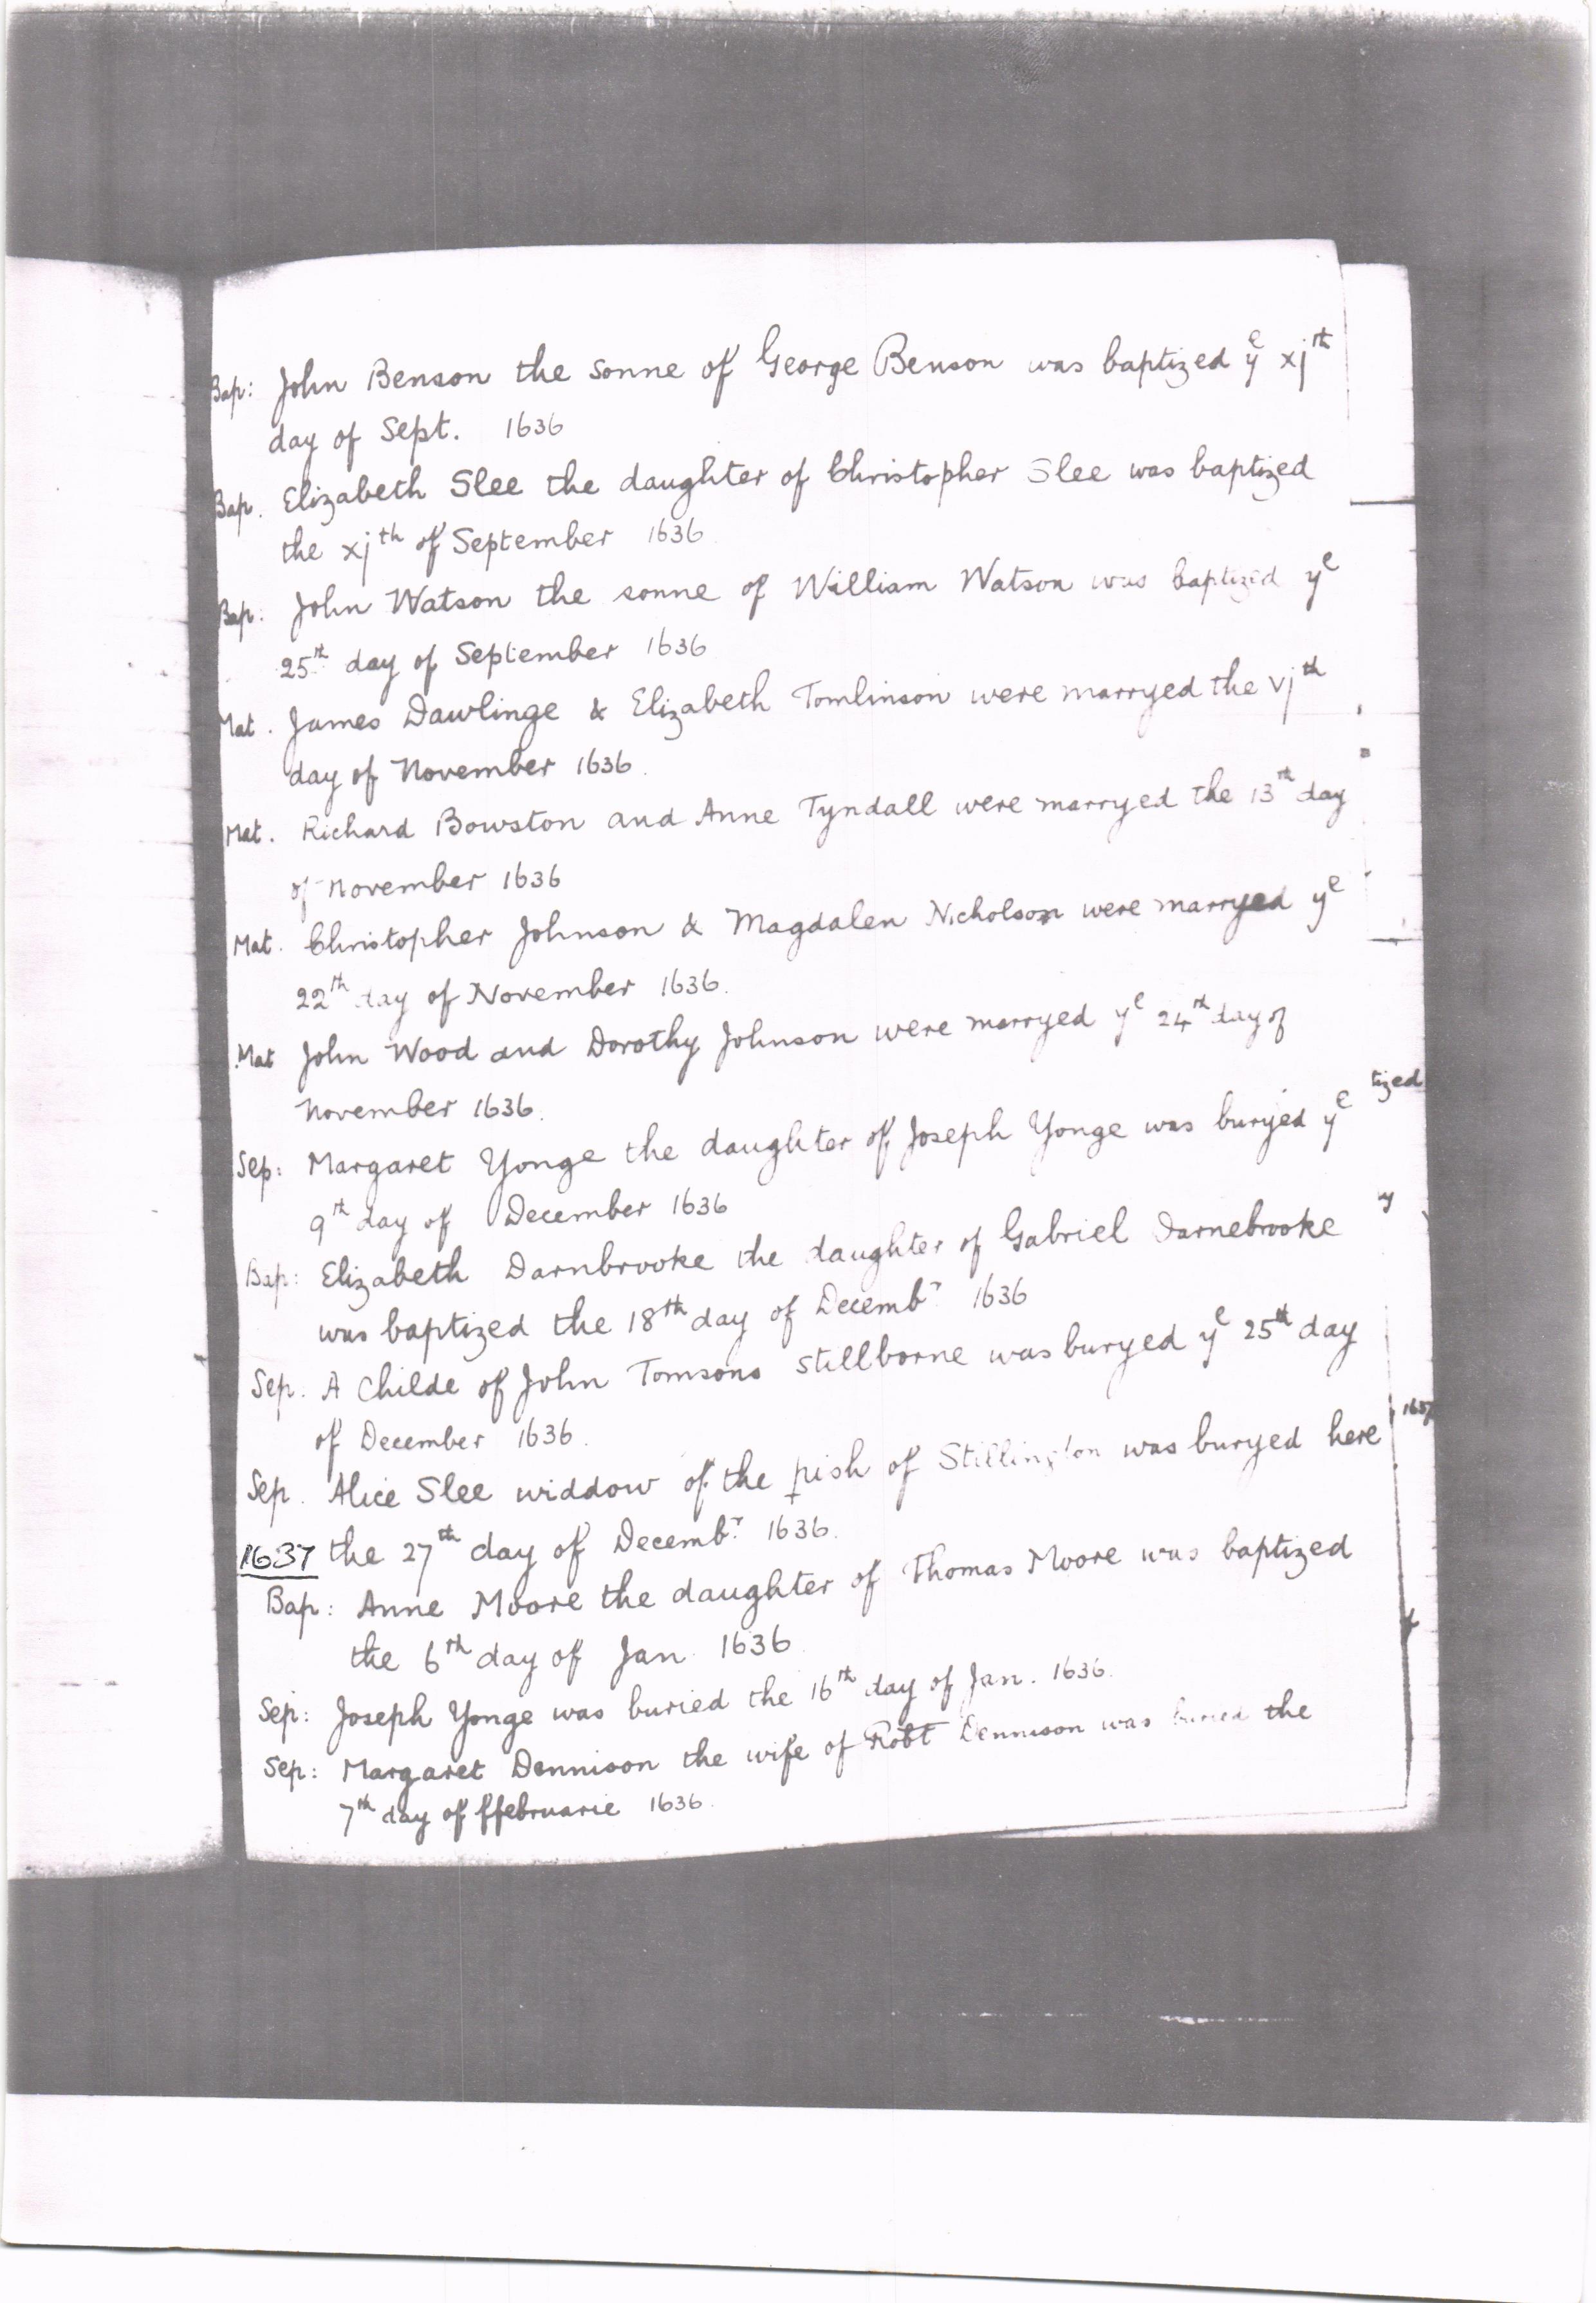 Bap: John Benson the sonne of George Benson was baptized ye xjth
day of Sept. 1636
Bap. Elizabeth Slee the daughter of Christopher Slee was baptized
the xjth of September 1636
Bap: John Watson the sonne of William Watson was baptized ye
25th day of September 1636
Mat. James Dawlinge & Elizabeth Tomlinson were marryed the vjth
day of November 1636.
Mat. Richard Bowston and Anne Tyndall were marryed the 13th day
of November 1636
Mat. Christopher Johnson & Magdalen Nicholson were marryed ye
22th day of November 1636.
Mat John Wood and Dorothy Johnson were marryed ye 24th day of
November 1636.
tized
Sep: Margaret Yonge the daughter of Joseph Yonge was buryed ye
9th day of December 1636
Bap: Elizabeth Darnbrooke the daughter of Gabriel Darnebrooke
was baptized the 18th day of Decembr 1636
Sep. A Childe of John Tomsons stillborne was buryed ye 25th day
of December 1636.
1637
Sep. Alice Slee widdow of the pish of Stillington was buryed here
1637 the 27th day of Decembr. 1636.
Bap: Anne Moore the daughter of Thomas Moore was baptized
the 6th day of Jan. 1636
Sep: Joseph Yonge was buried the 16th day of Jan. 1636.
Sep: Margaret Dennison the wife of Robt Dennison was buried the
7th day of ffebruarie 1636.